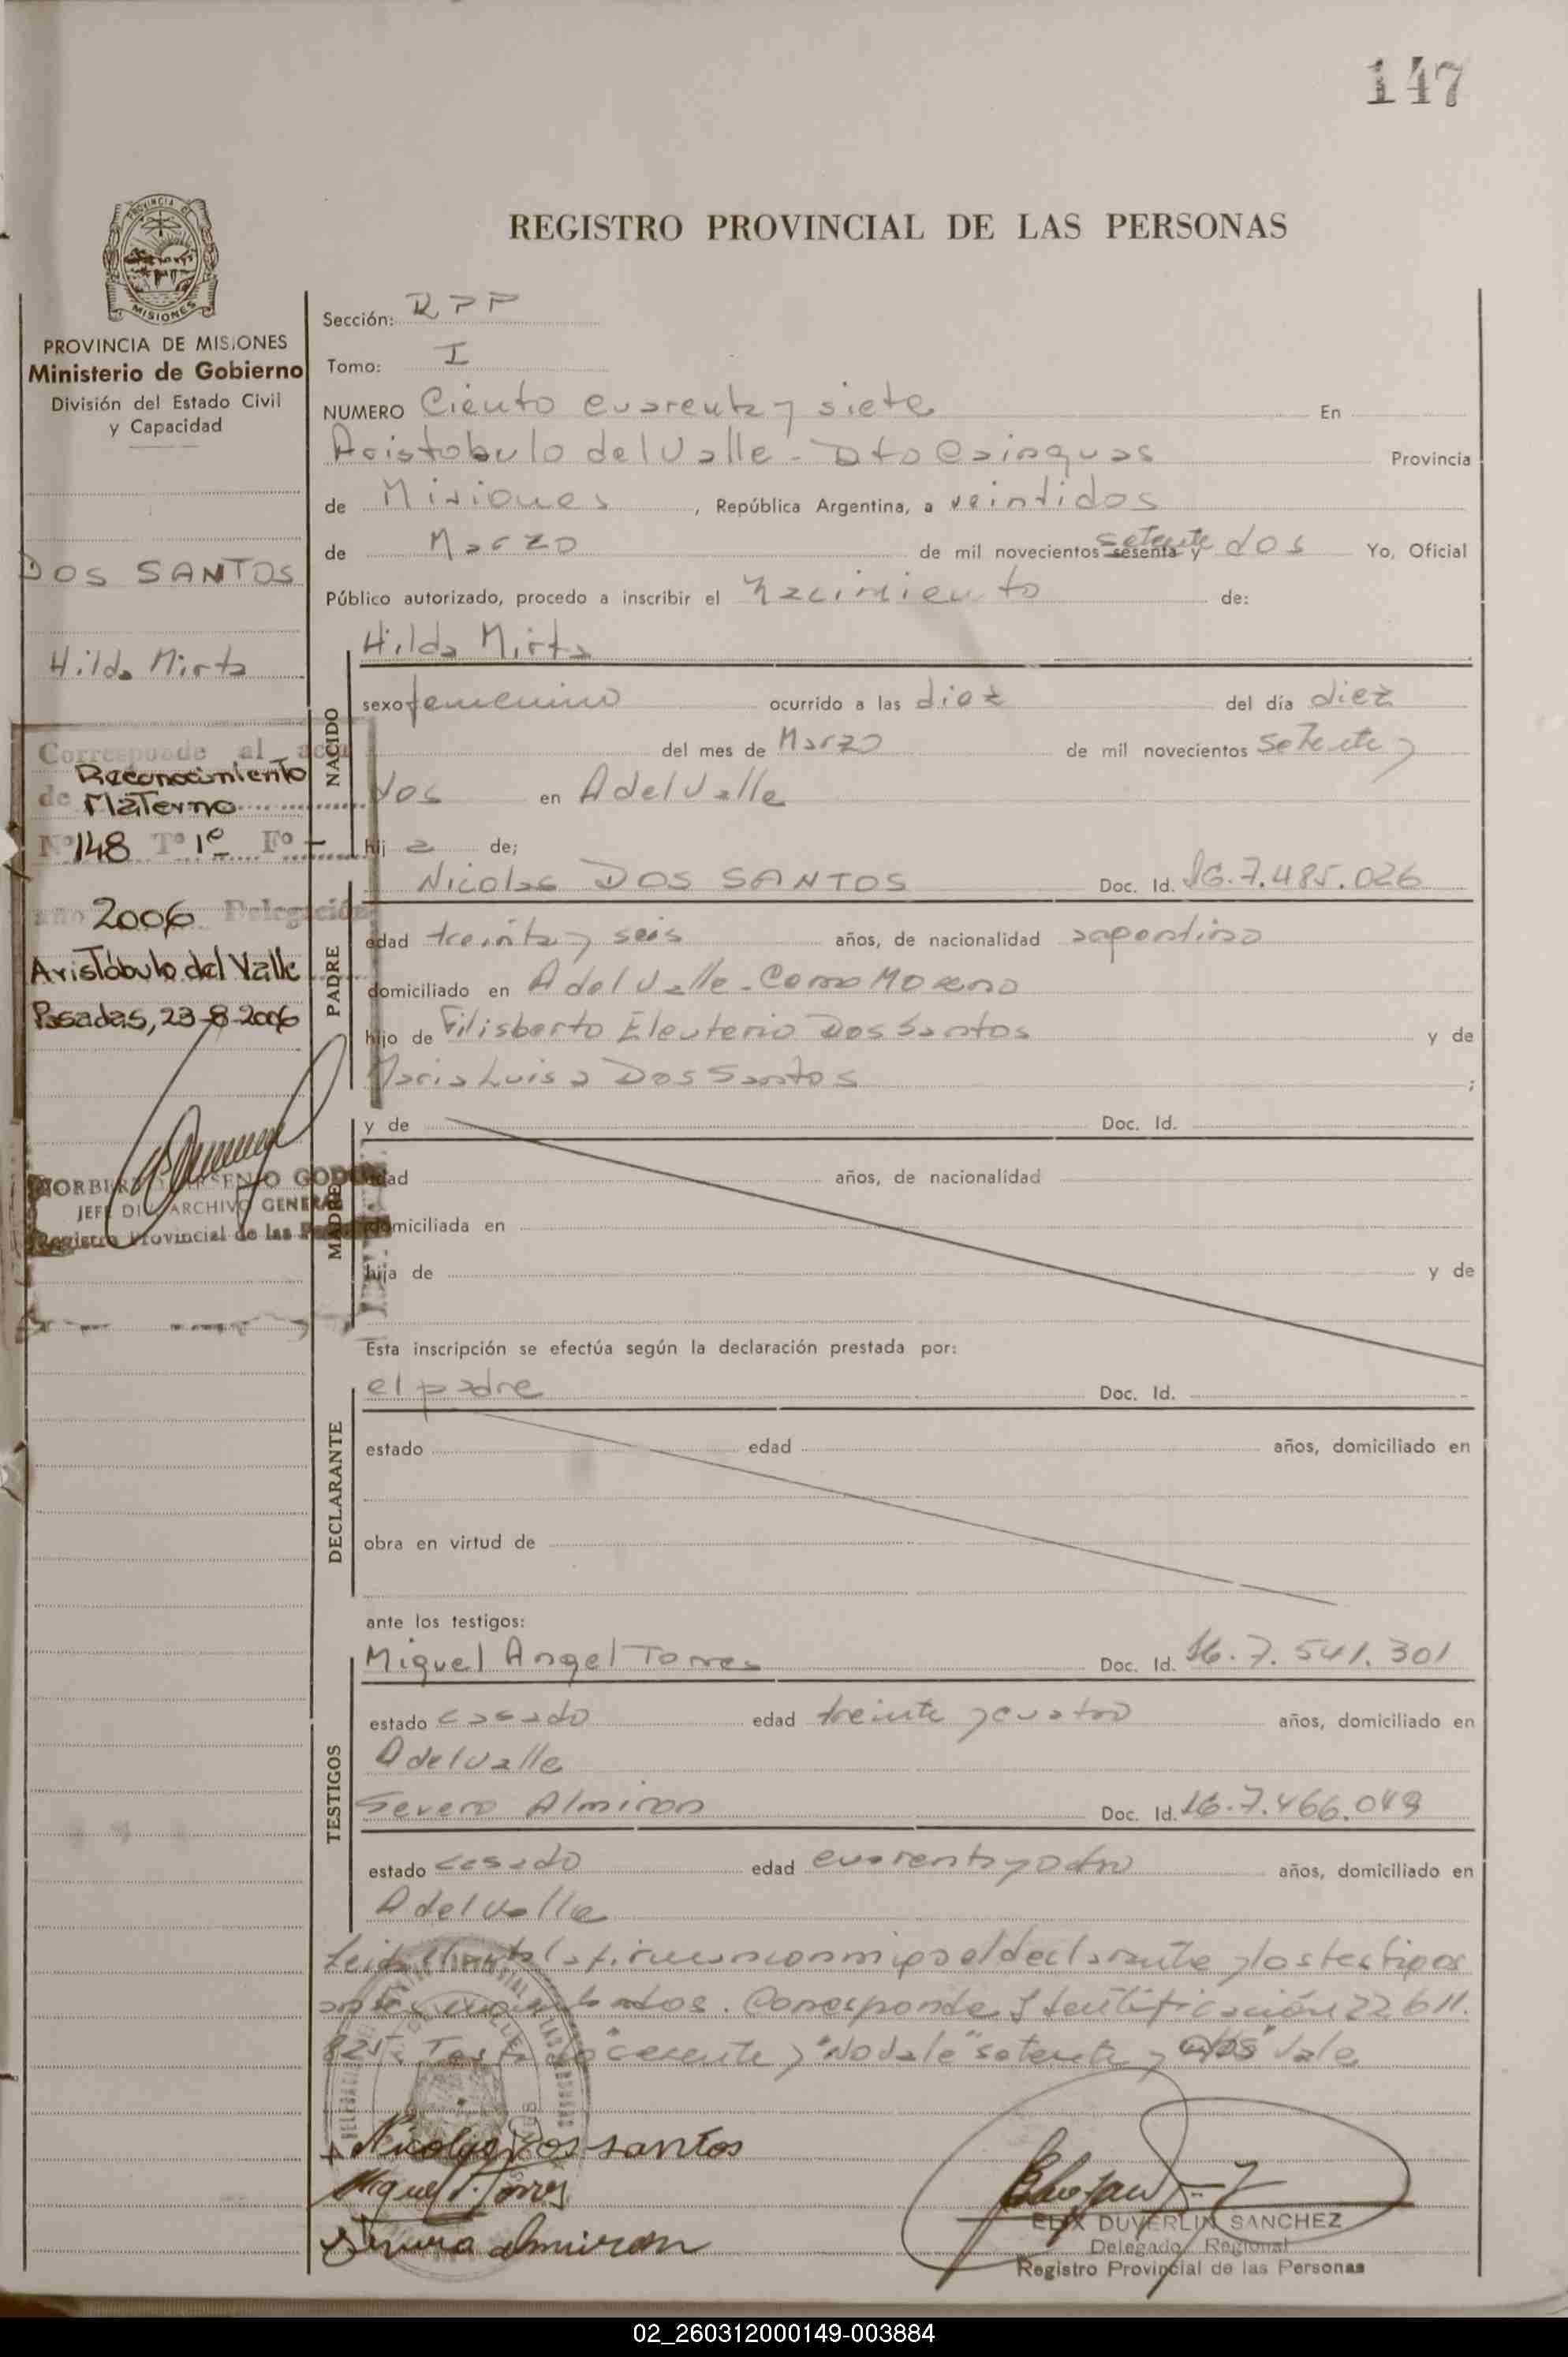 147
REGISTRO PROVINCIAL DE LAS PERSONAS
PROVINCIA DE MISIONES
PROVINCIA DE MISIONES
Ministerio de Gobierno
División del Estado Civil
y Capacidad
DOS SANTOS
Hilda Mirta
Corresponde al acta
de Reconocimiento
Materno
Nº 148 Tº 1º Fº -
año 2006 Delegación
Aristóbulo del Valle
Posadas, 23-8-2006
JEFE DEL ARCHIVO GENERAL
Registro Provincial de las
Sección: RPP
Tomo: I
NUMERO Ciento cuarenta y siete En
Aristobulo del Valle - Dto Cainguas Provincia
de Misiones, República Argentina, a veintidos
de Marzo de mil novecientos sesenta y setenta y dos Yo, Oficial
Público autorizado, procedo a inscribir el Nacimiento de:
NACIDO
Hilda Mirta
sexo femenino ocurrido a las diez del día diez
del mes de Marzo de mil novecientos setenta y
dos en A del Valle
hij a de;
PADRE
Nicolas DOS SANTOS Doc. Id. 7.485.026
edad treinta y seis años, de nacionalidad argentina
domiciliado en A del Valle - Cerro Moreno
hijo de Filisberto Eleuterio Dos Santos y de
Maria Luisa Dos Santos ;
MADRE
y de Doc. Id.
edad años, de nacionalidad
domiciliada en
hija de y de
Esta inscripción se efectúa según la declaración prestada por:
DECLARANTE
el padre Doc. Id.
estado edad años, domiciliado en
obra en virtud de
ante los testigos:
TESTIGOS
Miguel Angel Torres Doc. Id. 7.541.301
estado casado edad treinta y cuatro años, domiciliado en
A del Valle
Severo Almiron Doc. Id. 7.466.049
estado casado edad cuarenta y años, domiciliado en
A del Valle
Leida el acta la firman conmigo el declarante y los testigos
antes nombrados. Corresponde Identificación 22.611.
825. Testado "sesenta y" No vale "setenta y dos" Vale
Nicolas Dos santos
Miguel A. Torres
Severo almiron
ELIX DUVERLIN SANCHEZ
Delegado Regional
Registro Provincial de las Personas
02_260312000149-003884